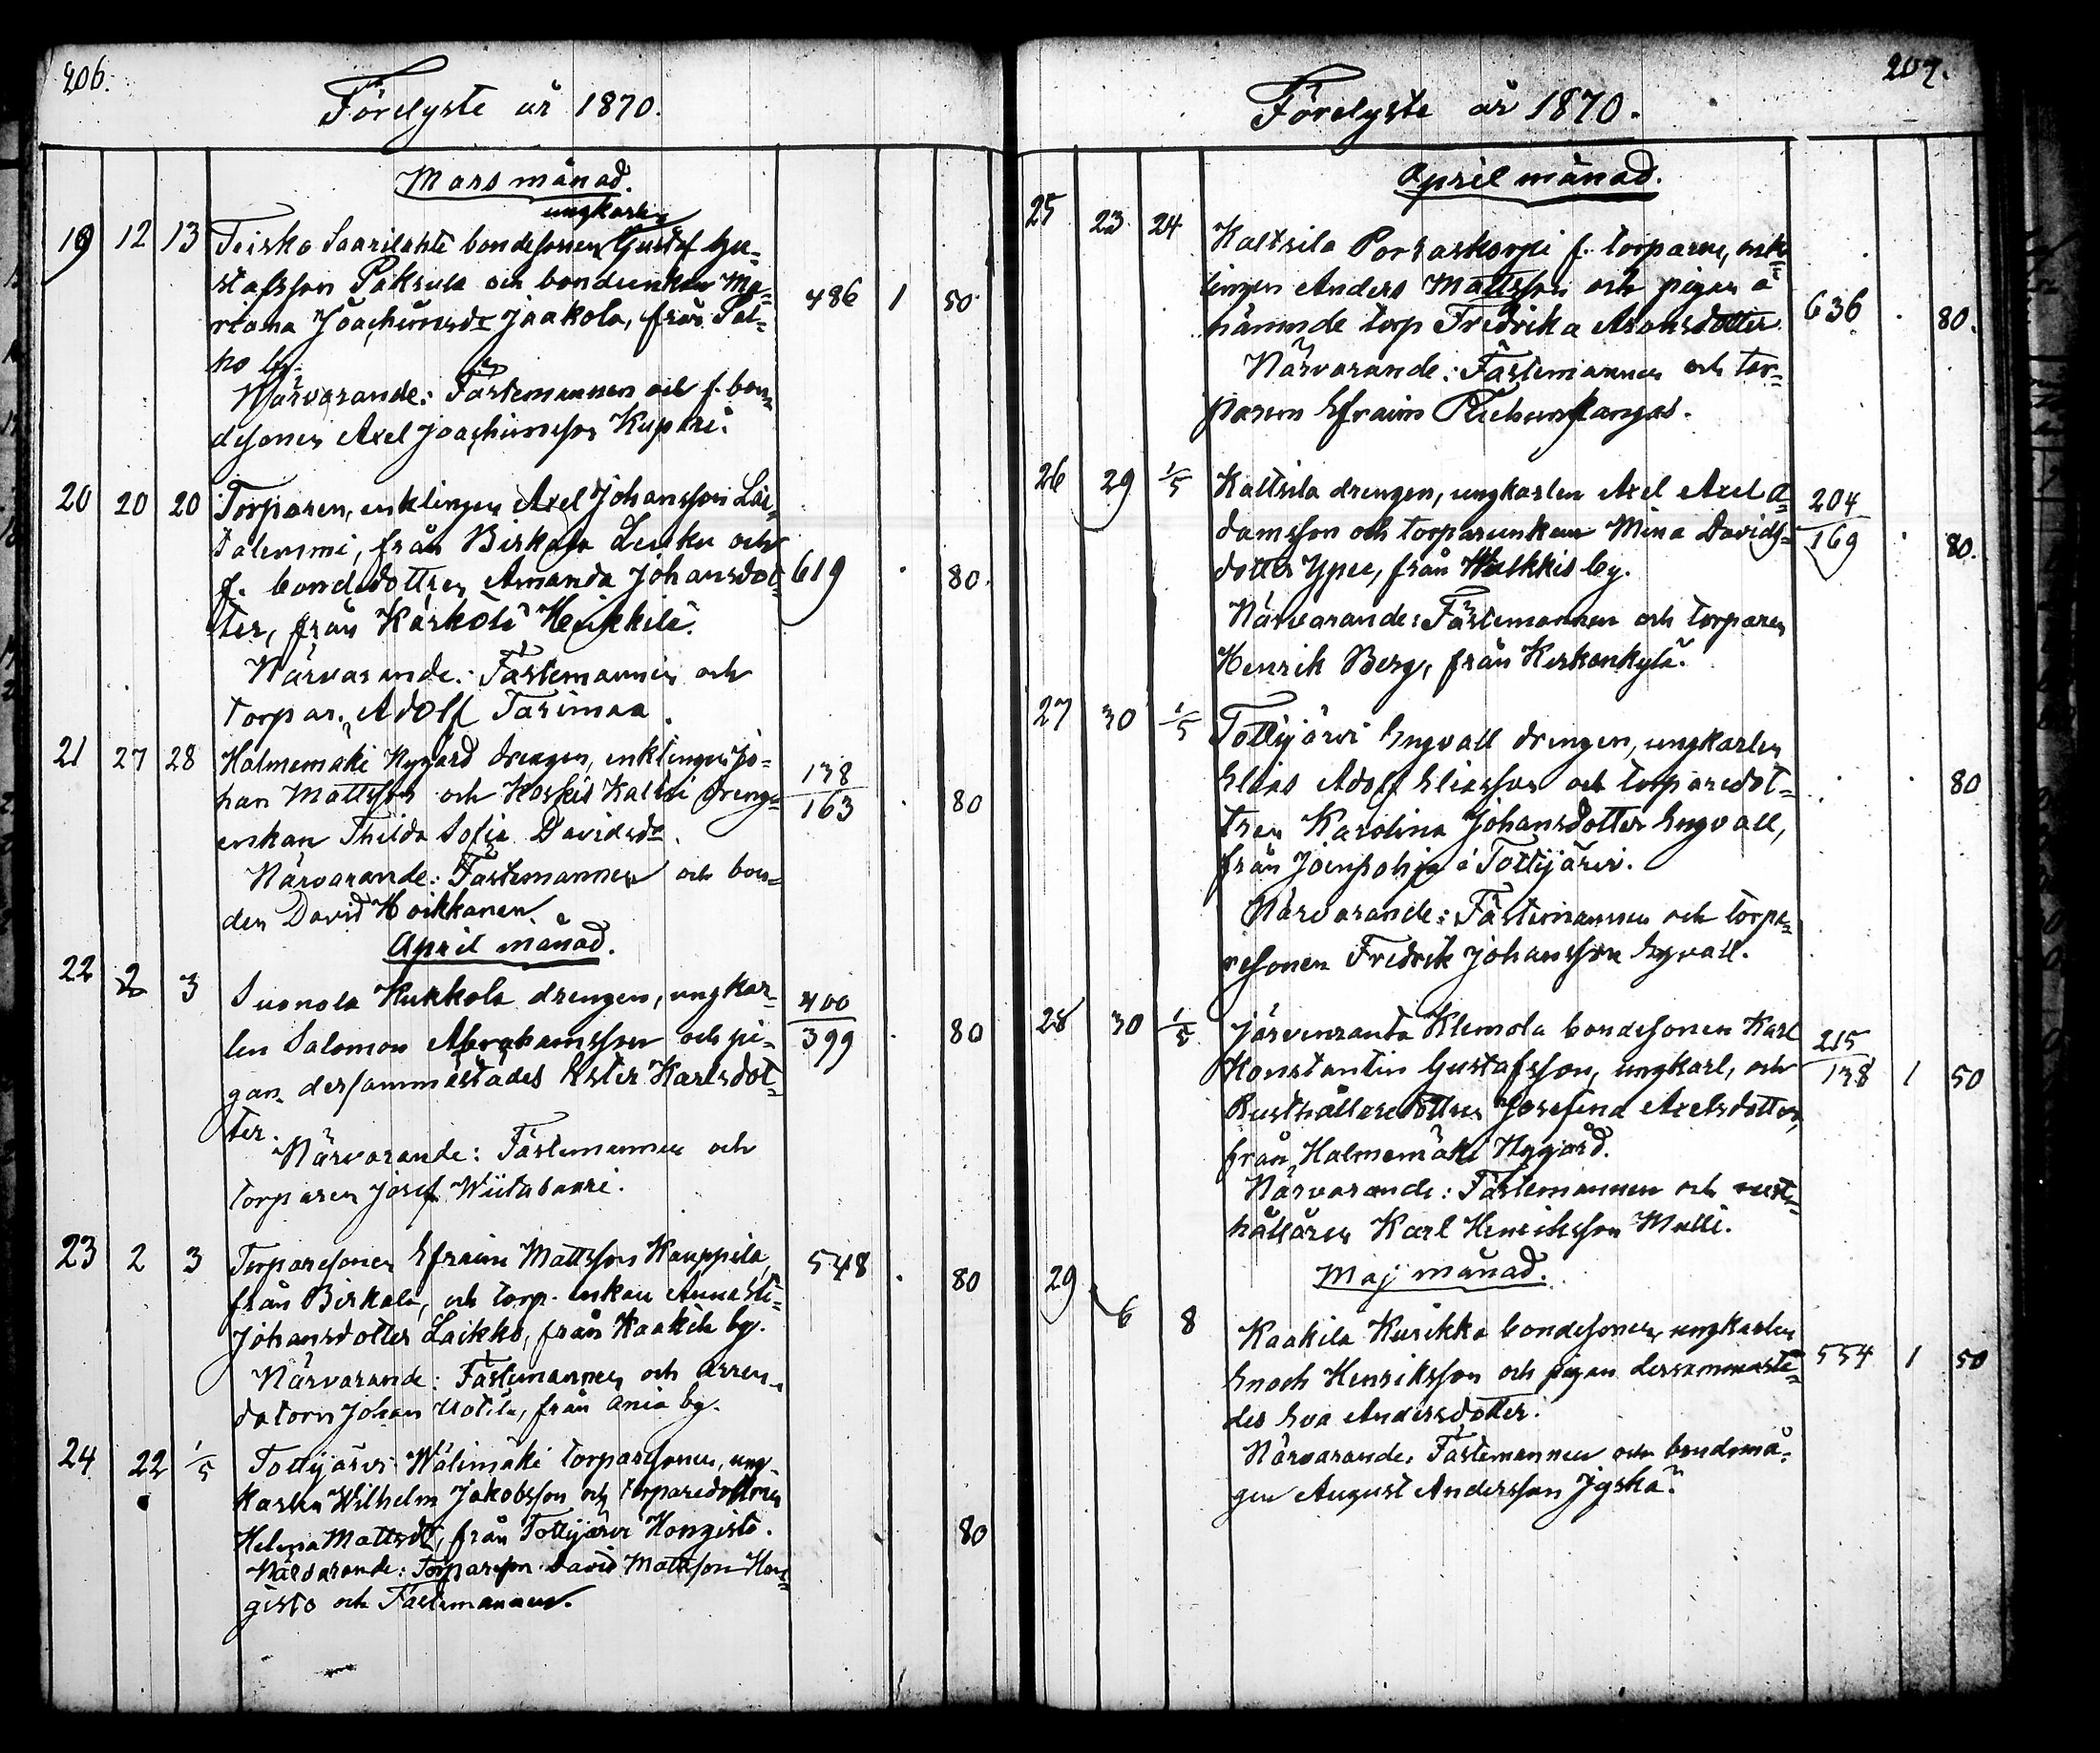 206.
Förelyste år 1870.
Mars månad.
ungkarlen
19 12 13 Teisko Saarilahti bondesonen Gustaf Gu-
stafsson Paksula och bondeenkan Ma-
riana Joachimsdr Jaakola, från Pal-
ho by. 486 1 50
Närvarande: Fästemannen och f. bon-
desonen Axel Joachimsson Kuppari.
20 20 20 Torparen, enklingen Axel Johansson
, från Birkala och
f. bondedottren Amanda Johansdot-
ter, från Kärkölä Heikkilä. 619 . 80.
Närvarande: Fästemannen och
torpar. Adolf Tarimaa.
21 27 28 Halmemäki Nygård drengen, enklingen Jo-
han Mattsson och Koskis Kaltsi dreng-
enkan Thilda Sofia Davidsdr. 138/163 . 80
Närvarande: Fästemannen och bon-
den David Hoikkanen.
April månad.
22 2 3 Suonola Kukkola drengen, ungkar-
len Salomon Abrahamsson och pi-
gan dersammastädes Ester Karlsdot-
ter. 400/399 . 80
Närvarande: Fästemannen och
torparen Josef Wiitasaari.
23 2 3 Torparesonen Efraim Mattsson Kauppila,
från Birkala, och torp. enkan Anna Sti-
Johansdotter Laikko, från Kaakila by. 548 . 80
Närvarande: Fästemannen och arren-
datorn Johan Uotila, från Ania by.
24 22 1/5 Tottijärvi Wälimäki torparesonen, ung-
karlen Wilhelm Jakobsson och torparedottren
Helena Mattsdr, från Tottijärvi Hongisto. 80
Närvarande: Torpareson David Mattsson Hon-
gisto och Fästemannen.
207.
Förelyste år 1870.
April månad.
25 23 24 Kaltsila Porraskorpi f. torparen, enk-
lingen Anders Mattsson och pigan å
nämnde torp Fredrika Aronsdotter. 636 . 80.
Närvarande: Fästemannen och tor-
paren Efraim
26 29 1/5 Kaltsila drengen, ungkarlen Axel Axel A-
damsson och torpareenkan Mina Davids-
dotter Ypee, från Hulkkis by. 204/169 . 80.
Närvarande: Fästemannen och torparen
Henrik Berg, från Kirkonkylä.
27 30 1/5 Tottijärvi Engvall drengen, ungkarlen
Elias Adolf Eliasson och torparedot-
tren Karolina Johansdotter Engvall,
från Joenpohja i Tottijärvi. . . 80
Närvarande: Fästemannen och torpa-
resonen Fredrik Johansson Engvall.
28 30 1/5 Järvenranta Klemola bondesonen Karl
Konstantin Gustafsson, ungkarl, och
Rusthållaredottren Josefina Axelsdotter,
från Halmemäki Nygård. 215/138 1 50
Närvarande: Fästemannen och rust-
hållaren Karl Henriksson Matti.
Maj månad.
29 6 8 Kaakila Kurikka bondesonen, ungkarlen
Enoch Henriksson och pigan dersammastä-
des Eva Andersdotter. 554 1 50
Närvarande: Fästemannen och bondemå-
gen August Andersson Jyskä.